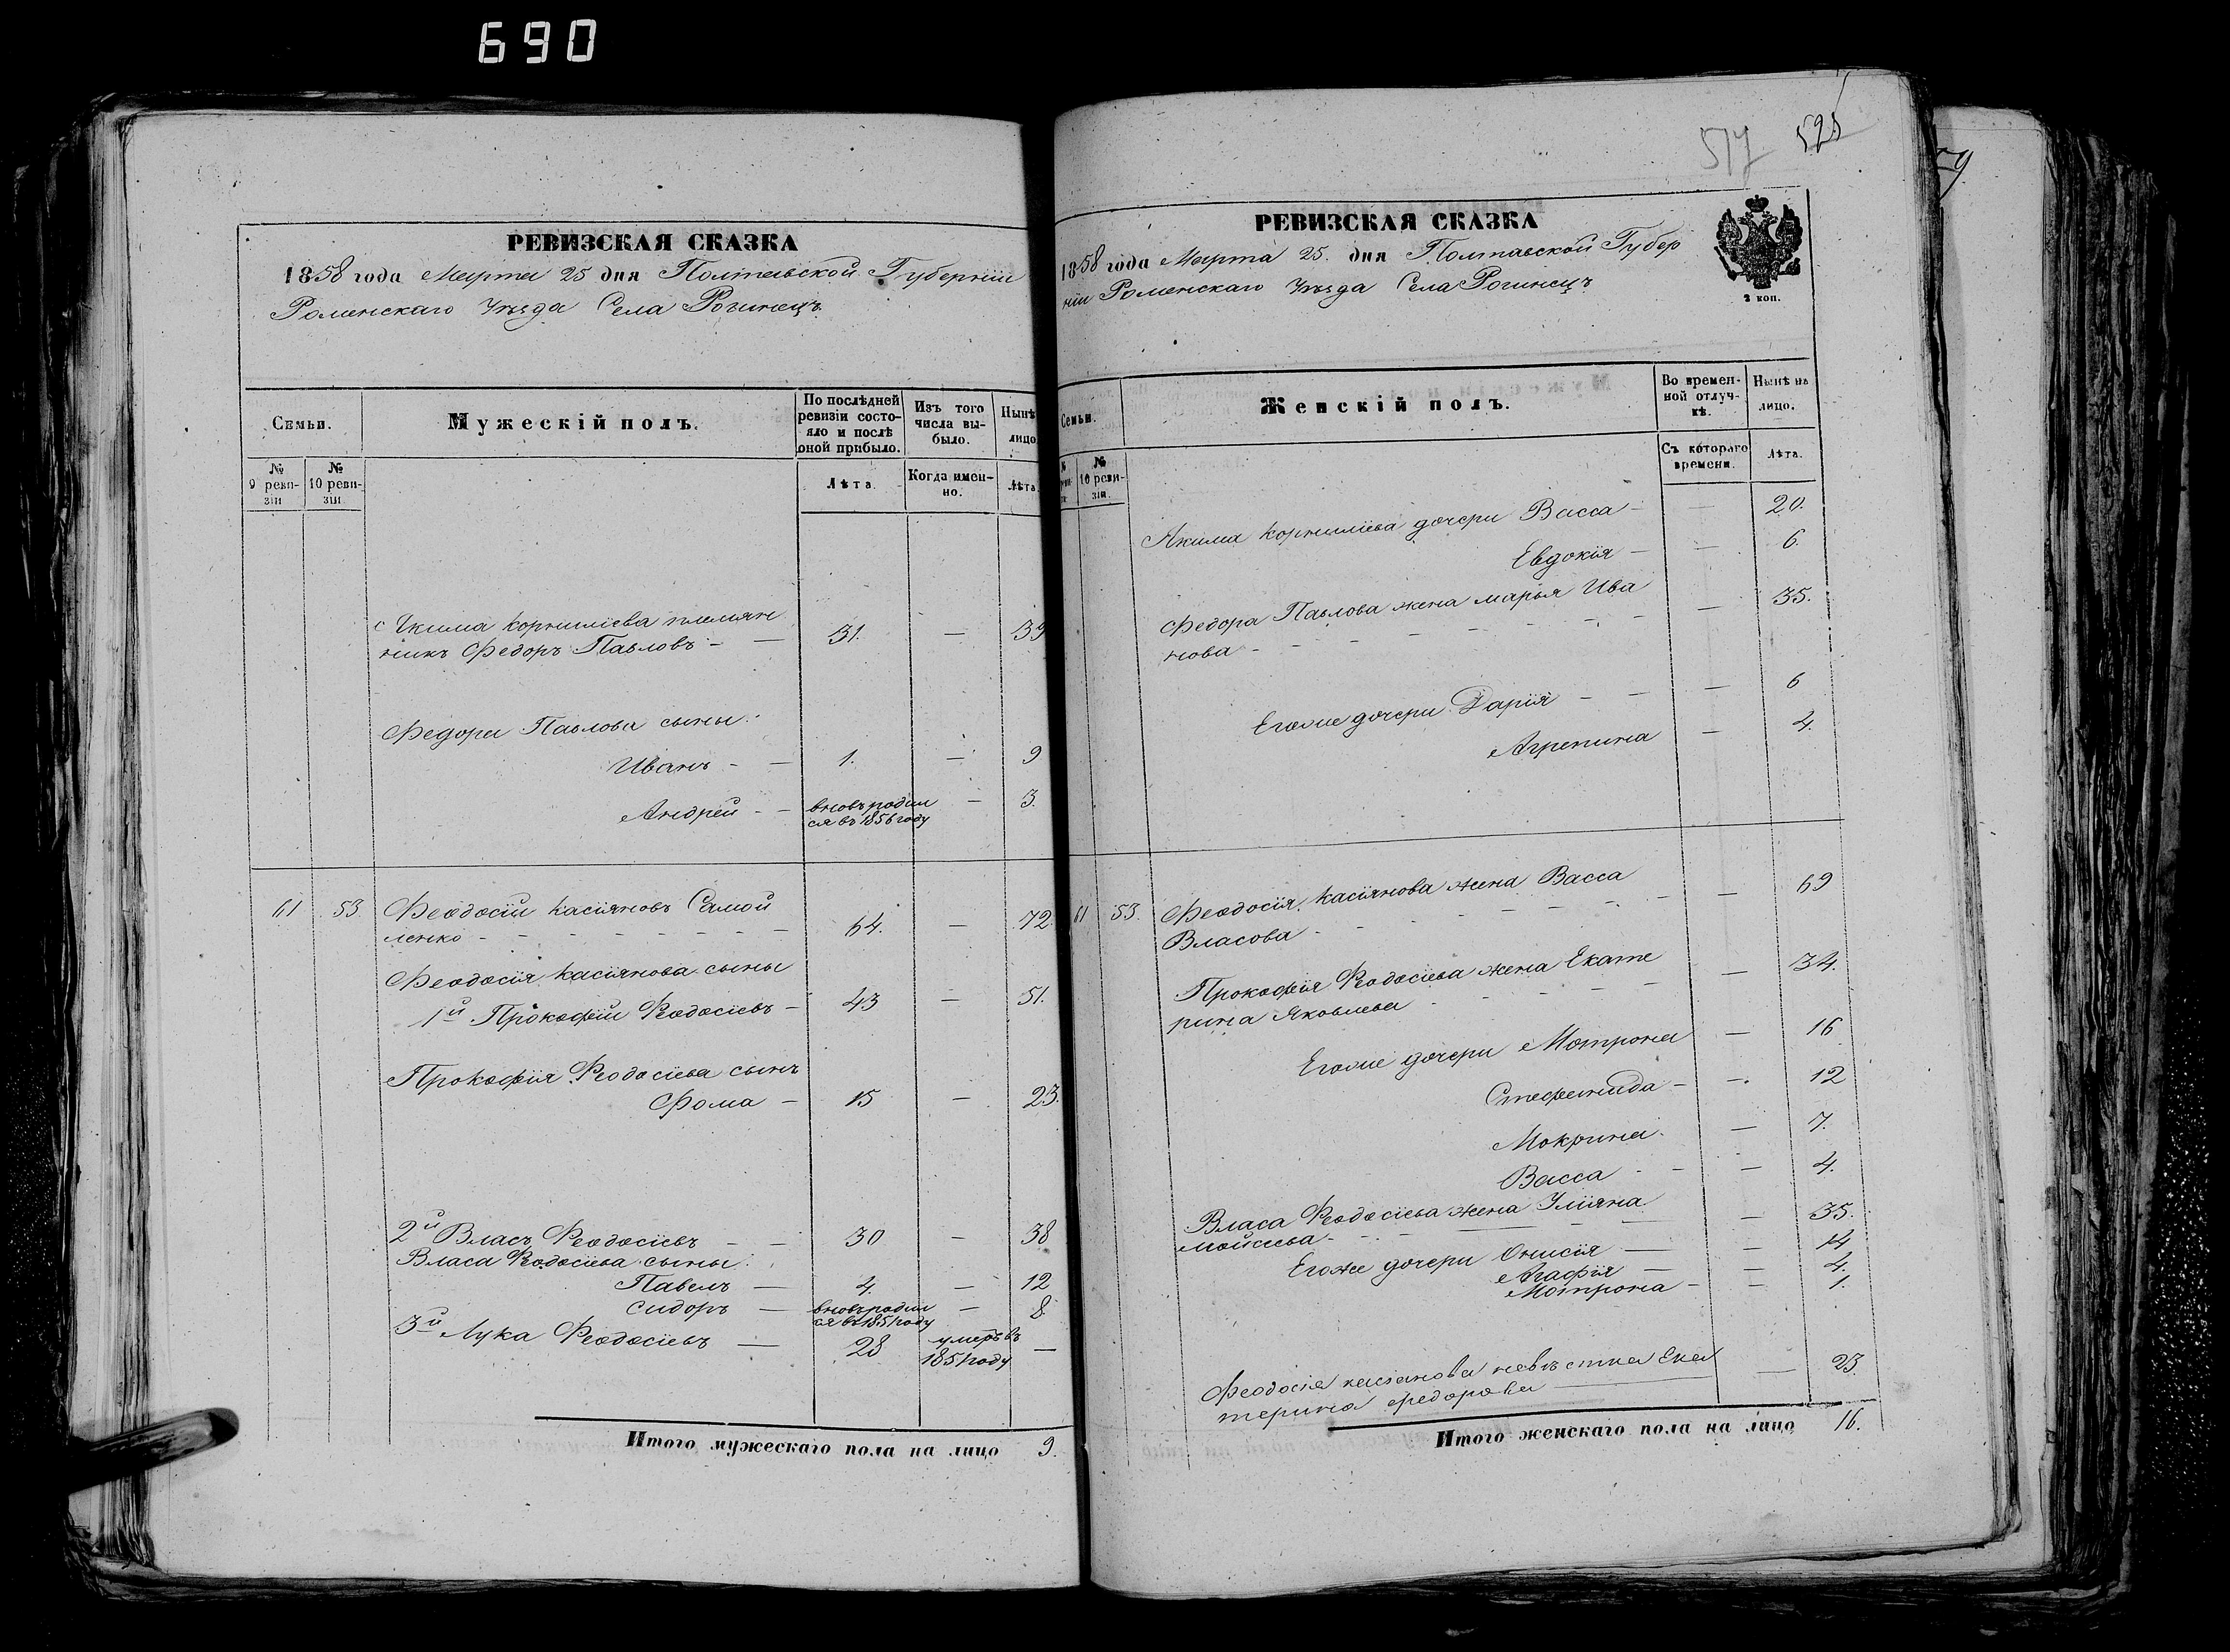 690
РЕВИЗСКАЯ СКАЗКА
1858 года Марта 25 дня Полтавской Губерніи
Роменскаго Уѣзда Села Рогинецъ
Семьи.
Мужескій полъ.
По послѣдней ревизіи состояло и послѣ оной прибыло.
Изъ того числа выбыло.
Нынѣ
лицо
№ 9 ревизіи
№ 10 ревизіи.
Лѣта.
Когда именно.
Лѣта.
Якима Корнилiева племян
никъ Федоръ Павловъ - — 31. — 39
Федора Павлова сыны:
Иванъ - — 1. — 9
Андрей - — вновь родил — 3.
ся въ 1856 году
61 53 Феодосій Касіяновъ Самой
ленко - - - - - - - - 64. — 72.
Феодосія Касіянова сыны
1й Прокофій Феодосіевъ - 43 — 51.
Прокофія Феодосіева сынъ
Фома - 15 — 23.
2й Власъ Феодосіевъ - — 30 — 38
Власа Феодосіева сыны:
Павелъ — 4. — 12
Сидоръ — вновь родил — 8.
ся въ 1851 году
3й Лука Феодосіевъ — 28 умеръ въ —
1851 году
Итого мужескаго пола на лицо 9.
517 525
РЕВИЗСКАЯ СКАЗКА
1858 года Марта 25. дня Полтавской Губер
ніи Роменскаго Уѣзда Села Рогинецъ
2 коп.
Семьи.
Женскій полъ.
Во временной отлучкѣ.
Нынѣ на лицо.
№ 10 ревизіи.
Съ котораго времени.
Лѣта.
Якима Корнилiева дочери Васса - — 20.
Евдокія — — 6.
Федора Павлова жена Марья Ива
нова - - - - - - - — 35.
Егоже дочери Дарія - — — 6
Агрепина — 4.
61 53. Феодосія Касіянова жена Васса
Власова - - - - - - - — 69
Прокофія Феодосіева жена Екате
рина Яковлева - - - - — 34.
Егоже дочери Мотрона — 16
Стефанида - — 12
Мокрина. — 7.
Васса - - — 4.
Власа Феодосіева жена Уліяна
Мойсіева - - - — 35.
Егоже дочери Онисія — — 14
Агафія — — 4.
Мотрона - — 1.
Феодосія Касіянова невѣстка Ека
терина Федорова — — 23.
Итого женскаго пола на лицо 16.